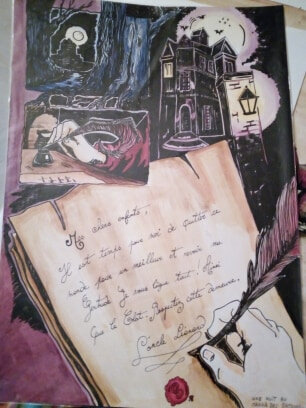 Mes chers enfants,
Il est temps pour moi de quitter ce
monde pour un meilleur et revoir ma
Gertrude. Je vous lègue tout : Mini
Que le Chat - Respectez cette demeure.
L'oncle
UNE NUIT AU